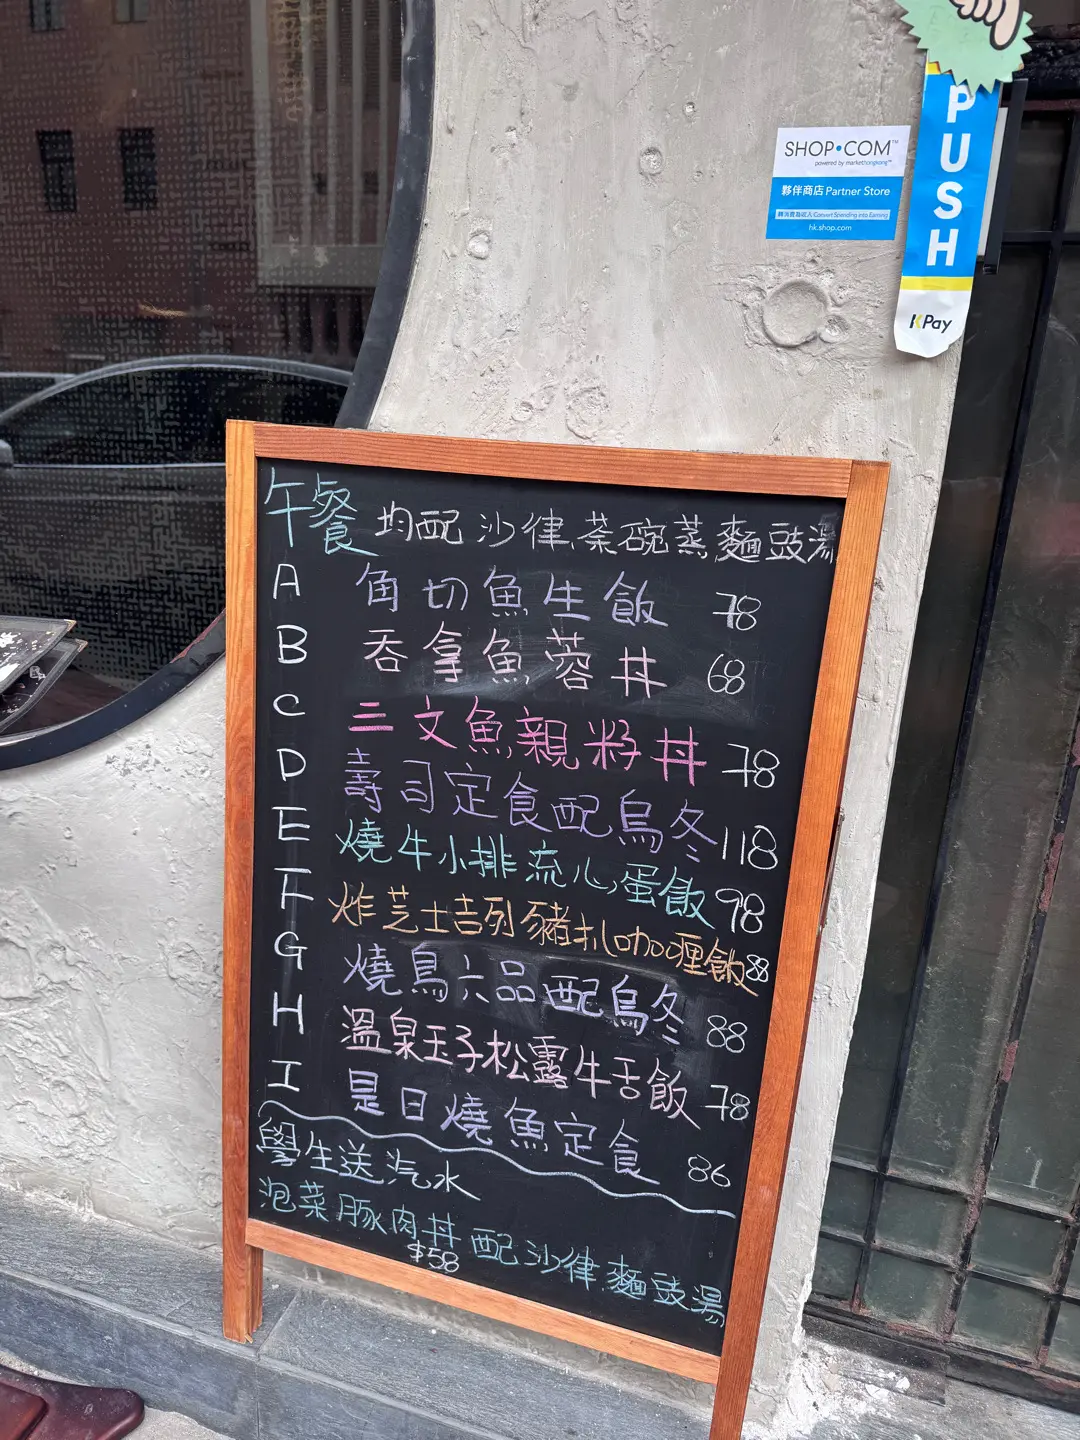 SHOP•COM™
powered by markethongkong™
夥伴商店 Partner Store
轉消費為收入 Convert Spending into Earning
hk.shop.com
PUSH
KPay
午餐 均配 沙律.茶碗蒸.麵豉湯
A 角切魚生飯 78
B 吞拿魚蓉丼 68
C 三文魚親籽丼 78
D 壽司定食配烏冬 118
E 燒牛小排流心蛋飯 98
F 炸芝士吉列豬扒咖喱飯 88
G 燒鳥六品配烏冬 88
H 溫泉玉子松露牛舌飯 78
I 是日燒魚定食 86
學生送汽水
泡菜豚肉丼 配沙律.麵豉湯
$58